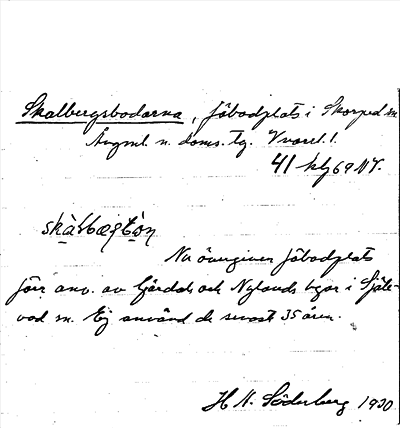 Skalbergsbodarna, fäbodplats i Skorped sn
Ångml. n. doms. tg. Vvarel.
41 klg 69 NV.
Nu övergiven fäbodplats
förr anv. av Gärdals och Nylands byar i Själe-
vad sn. Ej använd de senast 35 åren.
H N. Söderberg 1930